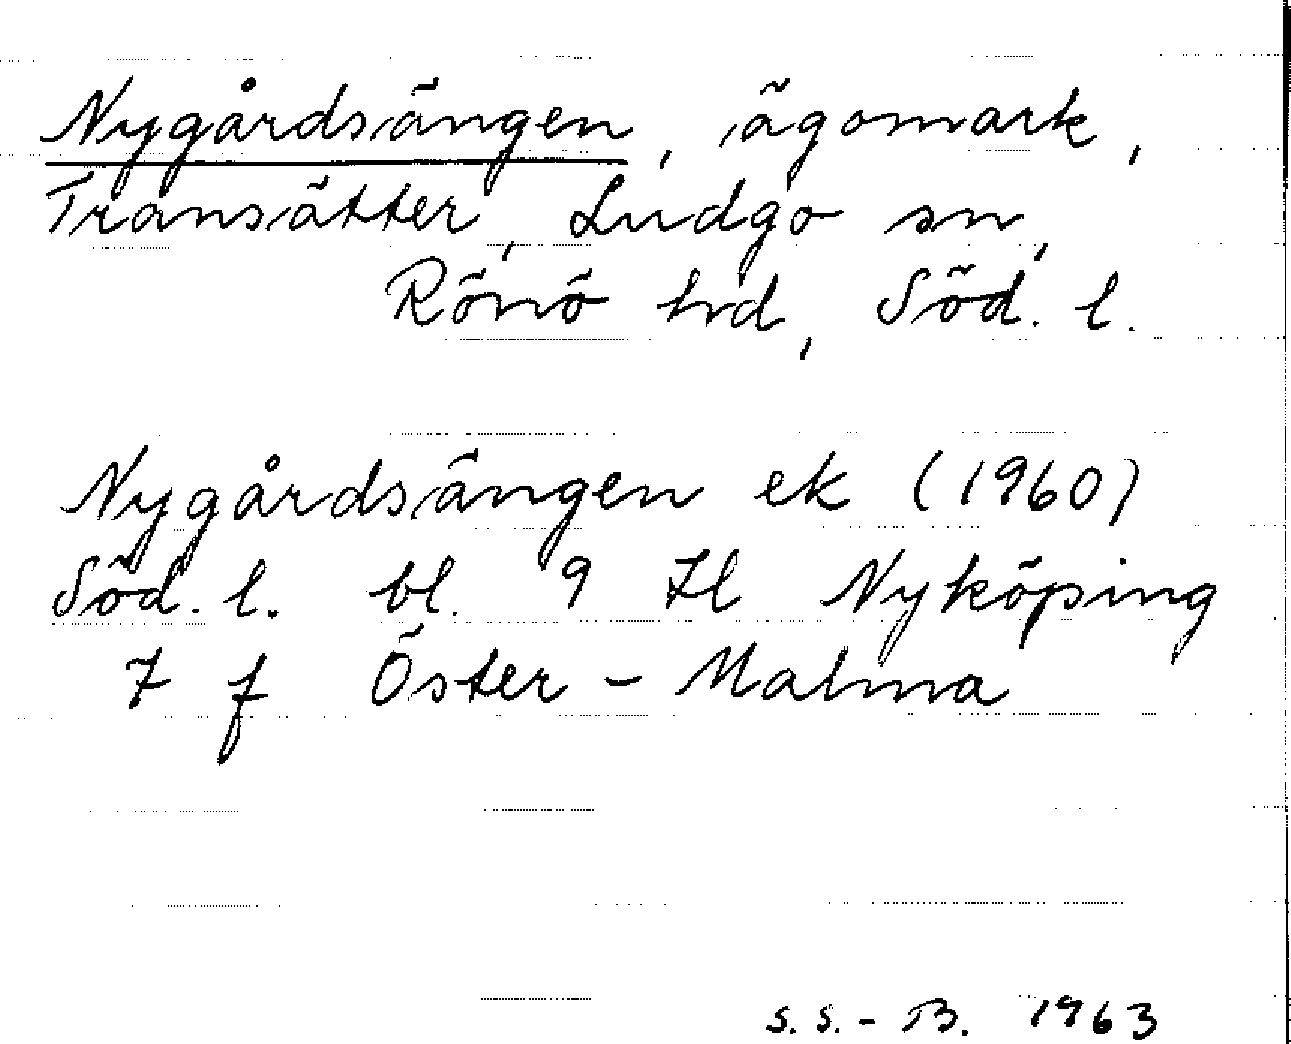 Nygårdsängen, ägomark,
Transätter, Ludgo sn,
Rönö hd, Söd. l.
Nygårdsängen ek (1960)
Söd. l. bl. 9 Il Nyköping
7 f Öster-Malma
S. S.-B. 1963